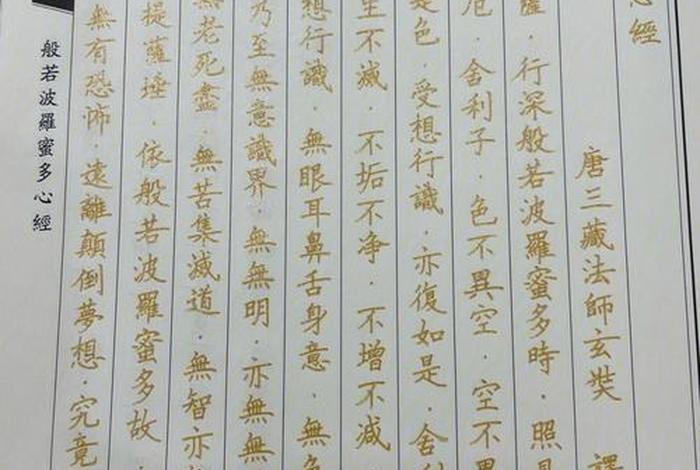 心經
唐三藏法師玄奘 譯
薩．行深般若波羅蜜多時．照
厄．舍利子．色不異空．空不異
是色．受想行識．亦復如是．舍利
生不滅．不垢不净．不增不減
想行識．無眼耳鼻舌身意．無色
乃至無意識界．無無明．亦無無
無老死盡．無苦集滅道．無智亦
提薩埵．依般若波羅蜜多故
無有恐怖．遠離顛倒夢想．究竟
般若波羅蜜多心經